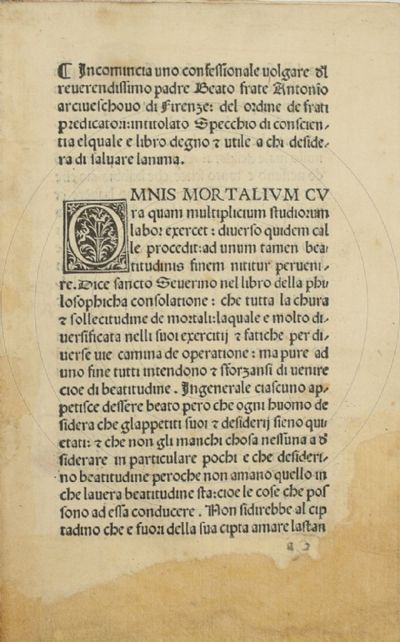 ¶ Incomincia uno confessionale volgare dl
reuerendissimo padre Beato frate Antonio
arciueschouo di Firenze: del ordine de frati
predicatori: intitolato Specchio di conscien-
tia elquale e libro degno ⁊ utile a chi deside-
ra di saluare lanima.
OMNIS MORTALIVM CV
ra quam multiplicium studiorum
labor exercet: diuerso quidem cal
le procedit: ad unum tamen bea-
titudinis finem nititur perueni-
re. Dice sancto Seuerino nel libro della phi
losophicha consolatione: che tutta la chura
⁊ sollecitudine de mortali: laquale e molto di-
uersificata nelli suoi exercitij ⁊ fatiche per di-
uerse uie camina de operatione: ma pure ad
uno fine tutti intendono ⁊ sforzansi di uenire
cioe di beatitudine. Ingenerale ciascuno ap-
petisce dessere beato pero che ogni huomo de
sidera che glappetiti suoi ⁊ desiderij sieno qui
etati: ⁊ che non gli manchi chosa nessuna a d
siderare in particulare pochi e che desideri-
no beatitudine peroche non amano quello in
che lauera beatitudine sta: cioe le cose che pos
sono ad essa conducere. Non sidirebbe al cip
tadino che e fuori della sua cipta amare lastan
a 2